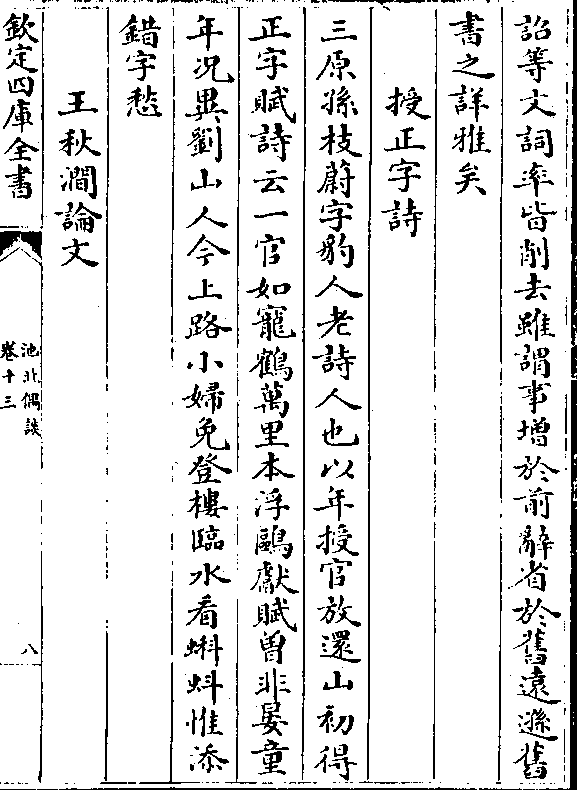 詔等文詞率皆削去雖謂事增於前辭省於舊遠遜舊
書之詳雅矣
授正字詩
三原孫枝蔚字豹人老詩人也以年授官放還山初得
正字賦詩云一官如寵鶴萬里本浮鷗獻賦曾非晏童
年况異劉山人今上路小婦免登樓臨水看蝌蚪惟添
錯字愁
王秋澗論文
欽定四庫全書
池北偶談
卷十三
八